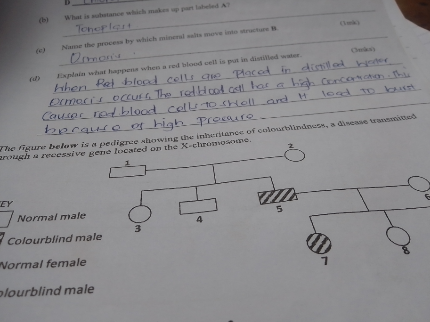 D
(b) What is substance which makes up part labeled A?
Tonoplast
(1mk)
(c) Name the process by which mineral salts move into structure B.
Osmosis
(3mks)
(d) Explain what happens when a red blood cell is put in distilled water.
When Red blood cells are placed in distilled water
Osmosis occurs. The red blood cell has a high concentration this
Causes red blood cells to swell and it lead to burst
because of high pressure
The figure below is a pedigree showing the inheritance of colourblindness, a disease transmitted
through a recessive gene located on the X-chromosome.
1
2
3
4
5
6
7
8
KEY
Normal male
Colourblind male
Normal female
olourblind male